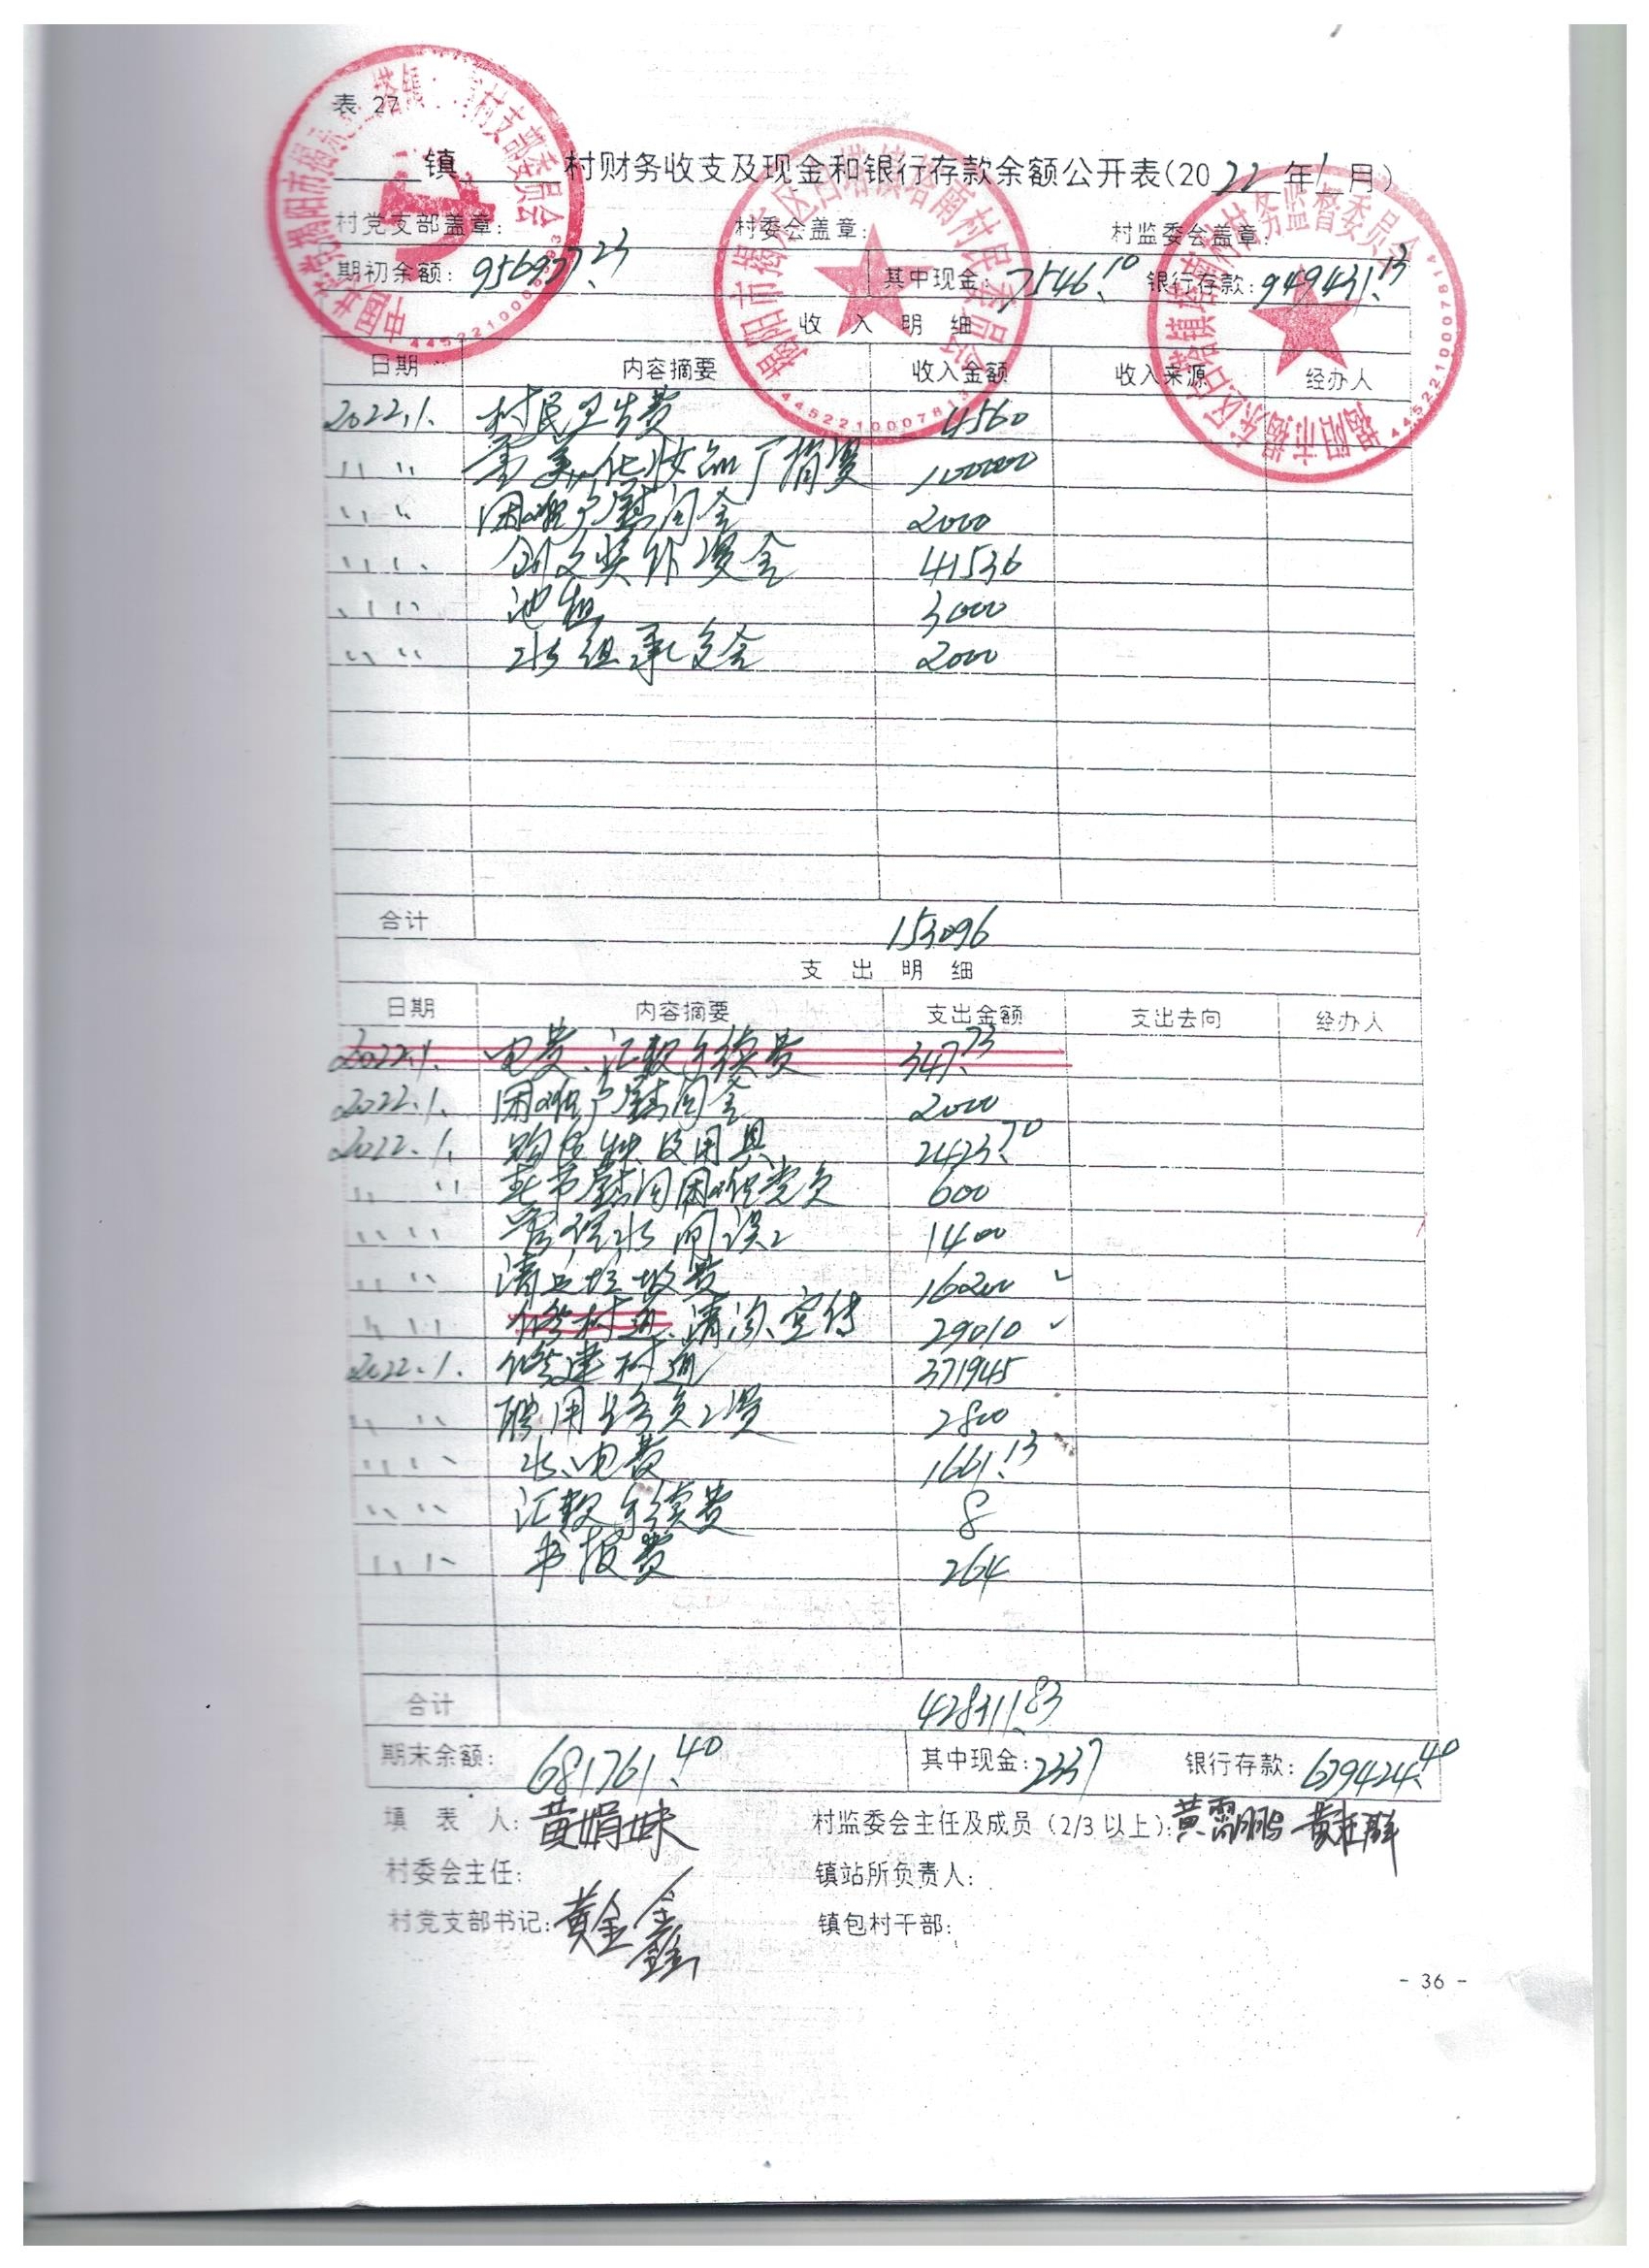 表 27
镇 村财务收支及现金和银行存款余额公开表(2022年1月)
村党支部盖章: 村委会盖章: 村监委会盖章:
期初余额: 956977.23 其中现金: 7546.10 银行存款: 949431.13
收 入 明 细
日期 内容摘要 收入金额 收入来源 经办人
2022.1. 村民卫生费 4560
〃 〃 美化妆品厂捐资 100000
〃 〃 困难户慰问金 2000
〃 〃 创文奖补资金 41536
〃 〃 池租 3000
〃 〃 水组承包金 2000
合计 153096
支 出 明 细
日期 内容摘要 支出金额 支出去向 经办人
2022.1. 电费、汇款手续费 347.73
2022.1. 困难户慰问金 2000
2022.1. 购 及用具 2423.70
〃 〃 春节慰问困难党员 600
〃 〃 管理水闸误工 1400
〃 〃 清运垃圾费 16200
〃 〃 修村道、清沟、宣传 29010
2022.1. 修建村道 371945
〃 〃 聘用 员工资 2800
〃 〃 水、电费 1661.13
〃 〃 汇款手续费 8
〃 〃 书报费 264
合计 428311.83
期末余额: 681761.40 其中现金: 2337 银行存款: 679424.40
填 表 人: 黄娟妹 村监委会主任及成员(2/3以上): 黄
村委会主任: 镇站所负责人:
村党支部书记: 黄金鑫 镇包村干部:
- 36 -